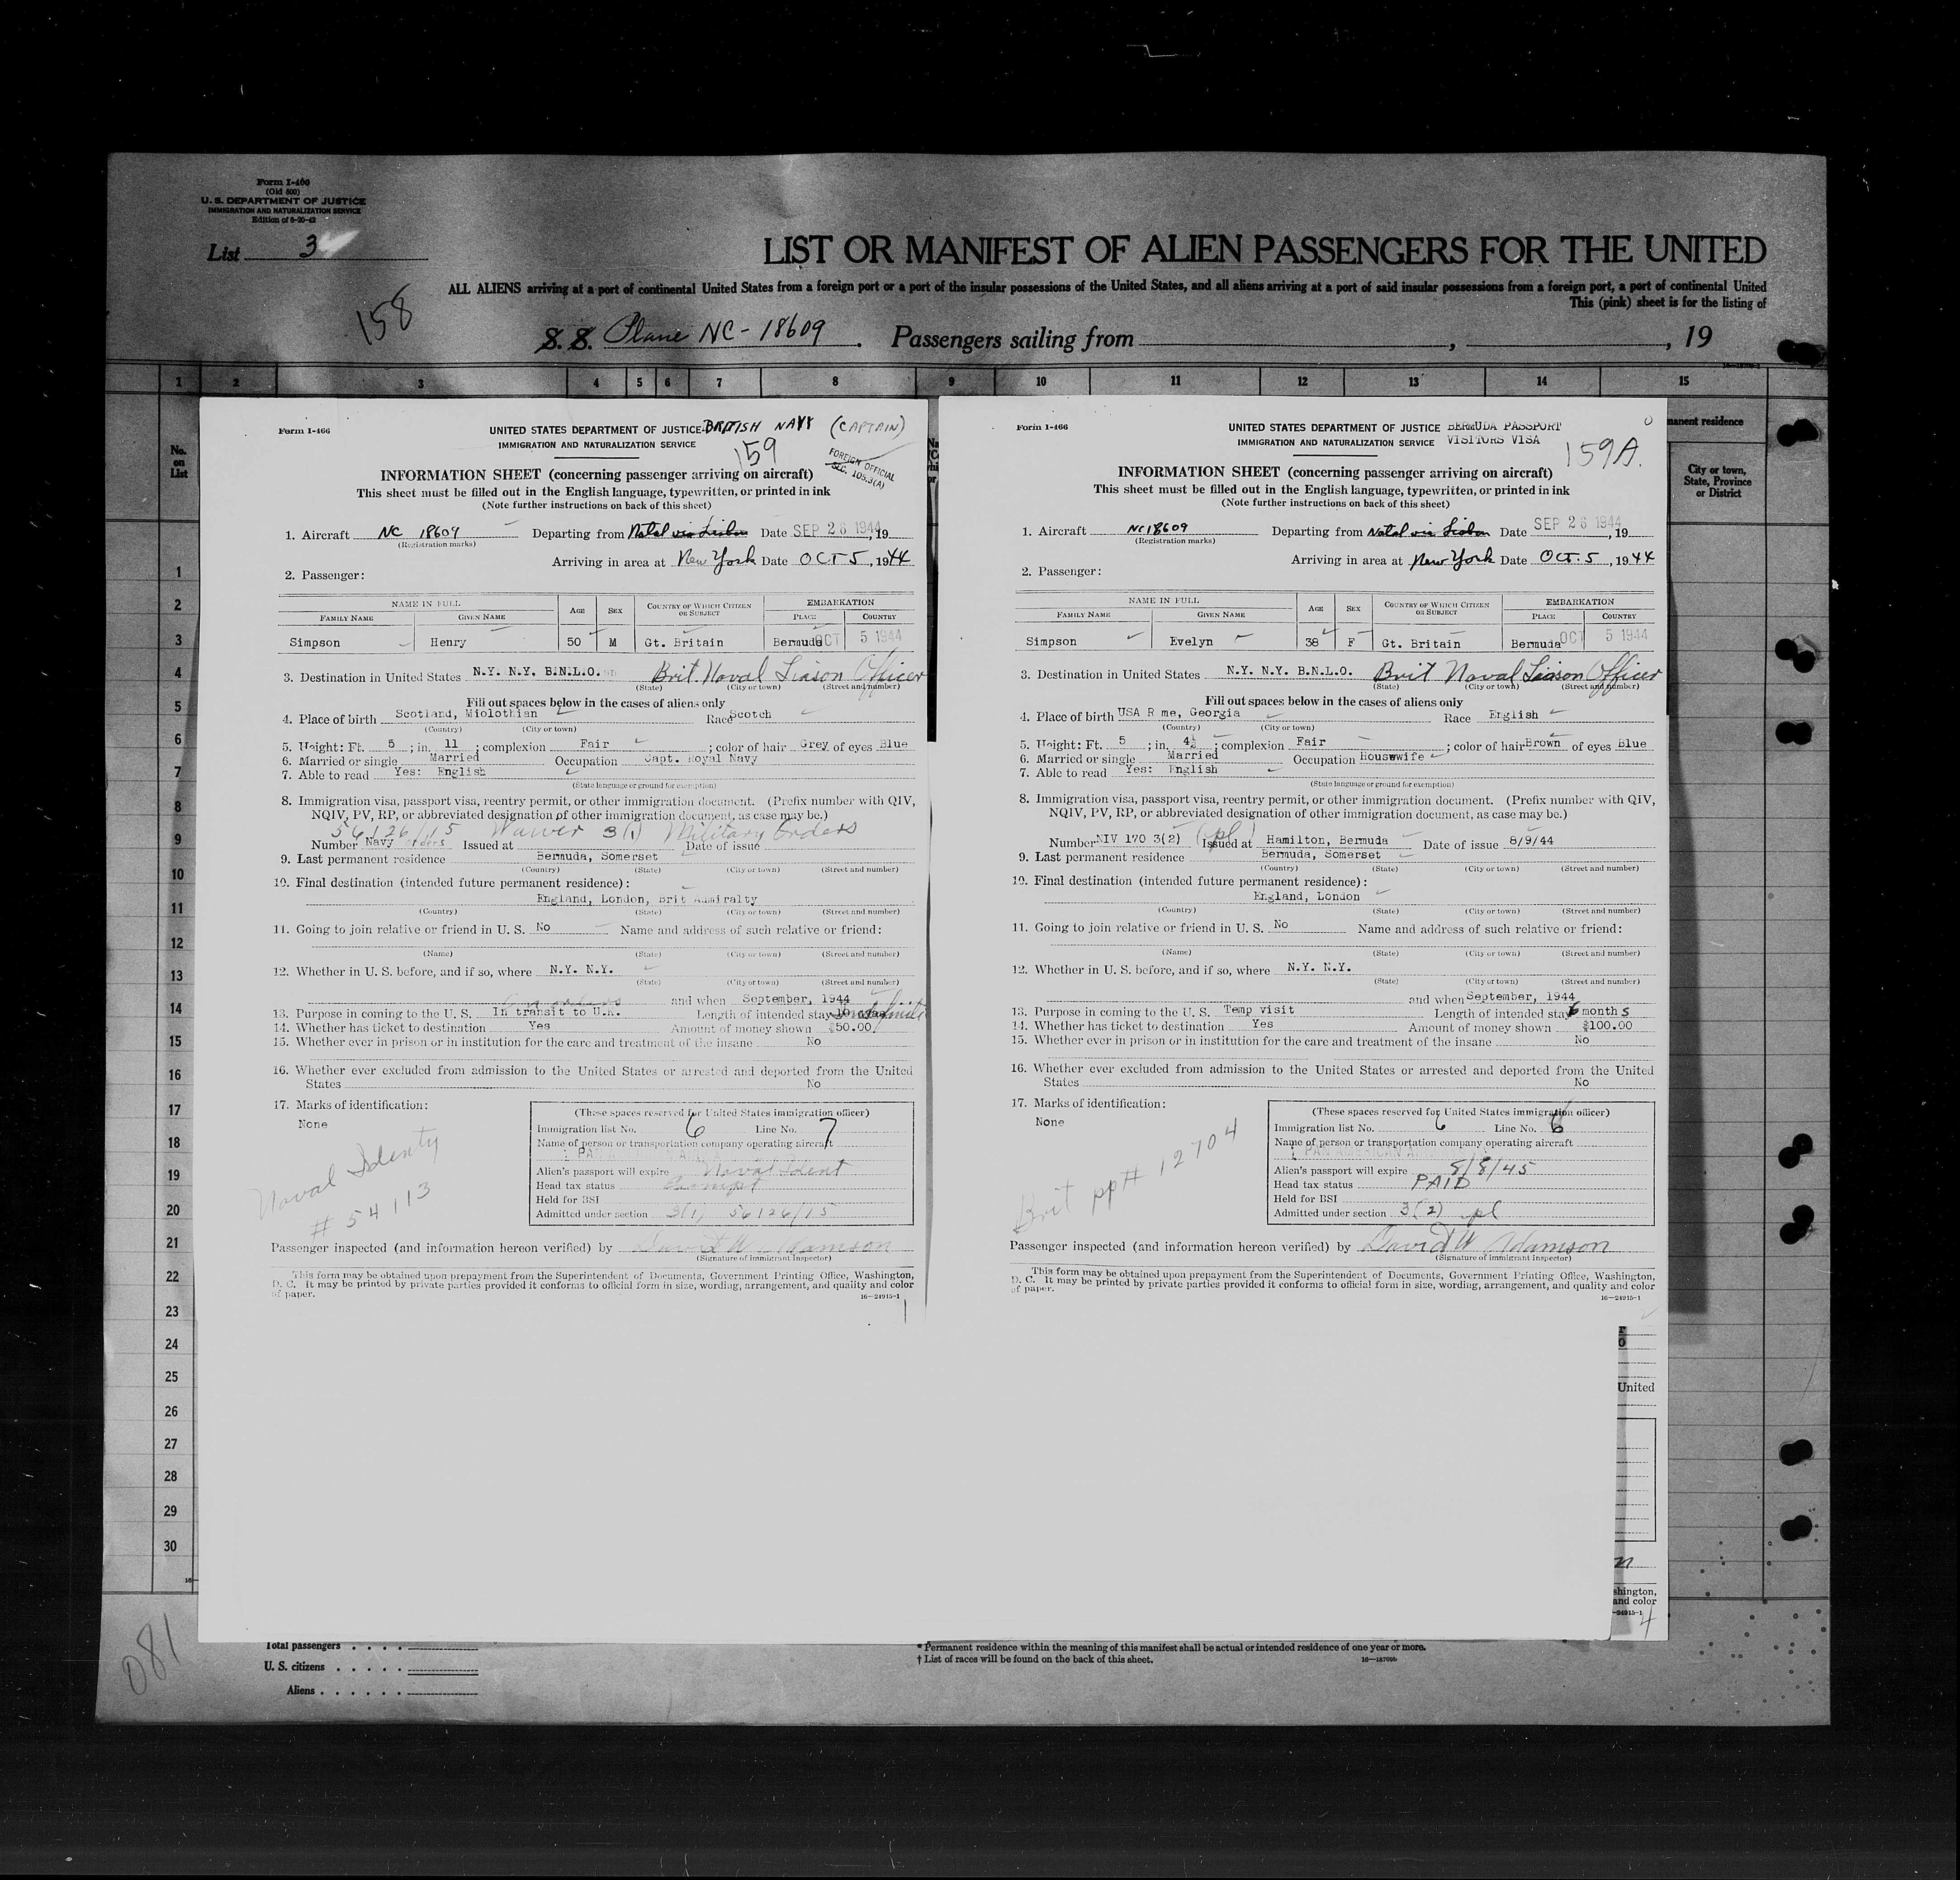 Form I-466
(Old 500)
U. S. DEPARTMENT OF JUSTICE
IMMIGRATION AND NATURALIZATION SERVICE
Edition of 6-20-42
List 3
LIST OR MANIFEST OF ALIEN PASSENGERS FOR THE UNITED
ALL ALIENS arriving at a port of continental United States from a foreign port or a port of the insular possessions of the United States, and all aliens arriving at a port of said insular possessions from a foreign port, a port of continental United
This (pink) sheet is for the listing of
158
S. S. Plane NC-18609. Passengers sailing from , , 19
1 2 3 4 5 6 7 8 9 10 11 12 13 14 15
No. on List
manent residence
City or town, State, Province or District
1
2
3
4
5
6
7
8
9
10
11
12
13
14
15
16
17
18
19
20
21
22
23
24
25
26
27
28
29
30
Form I-466
UNITED STATES DEPARTMENT OF JUSTICE BRITISH NAVY (CAPTAIN)
IMMIGRATION AND NATURALIZATION SERVICE
159
FOREIGN OFFICIAL
SEC. 105.3(A)
INFORMATION SHEET (concerning passenger arriving on aircraft)
This sheet must be filled out in the English language, typewritten, or printed in ink
(Note further instructions on back of this sheet)
1. Aircraft NC 18609 Departing from Natal via Lisbon Date SEP 26 1944, 19
(Registration marks)
Arriving in area at New York Date OCT 5, 1944
2. Passenger:
NAME IN FULL AGE SEX COUNTRY OF WHICH CITIZEN OR SUBJECT EMBARKATION
FAMILY NAME GIVEN NAME PLACE COUNTRY
Simpson Henry 50 M Gt. Britain Bermuda OCT 5 1944
3. Destination in United States N.Y. N.Y. B.N.L.O. Brit. Naval Liason Officer
(State) (City or town) (Street and number)
Fill out spaces below in the cases of aliens only
4. Place of birth Scotland, Miolothian Race Scotch
(Country) (City or town)
5. Height: Ft. 5; in. 11; complexion Fair; color of hair Grey of eyes Blue
6. Married or single Married Occupation Capt. Royal Navy
7. Able to read Yes: English
(State language or ground for exemption)
8. Immigration visa, passport visa, reentry permit, or other immigration document. (Prefix number with QIV,
NQIV, PV, RP, or abbreviated designation of other immigration document, as case may be.)
56126/15 Waiver 3(1) Military Orders
Number Navy orders Issued at Date of issue
9. Last permanent residence Bermuda, Somerset
(Country) (State) (City or town) (Street and number)
10. Final destination (intended future permanent residence):
England, London, Brit Admiralty
(Country) (State) (City or town) (Street and number)
11. Going to join relative or friend in U. S. No Name and address of such relative or friend:
(Name) (State) (City or town) (Street and number)
12. Whether in U. S. before, and if so, where N.Y. N.Y.
(State) (City or town) (Street and number)
On orders and when September, 1944
13. Purpose in coming to the U. S. In transit to U.K. Length of intended stay
14. Whether has ticket to destination Yes Amount of money shown $50.00
15. Whether ever in prison or in institution for the care and treatment of the insane No
16. Whether ever excluded from admission to the United States or arrested and deported from the United
States No
17. Marks of identification:
None
Naval Identy
# 54113
(These spaces reserved for United States immigration officer)
Immigration list No. 6 Line No. 7
Name of person or transportation company operating aircraft
Alien's passport will expire Naval Ident
Head tax status Exempt
Held for BSI
Admitted under section 3(1) 56126/15
Passenger inspected (and information hereon verified) by David W Adamson
(Signature of immigrant inspector)
This form may be obtained upon prepayment from the Superintendent of Documents, Government Printing Office, Washington,
D. C. It may be printed by private parties provided it conforms to official form in size, wording, arrangement, and quality and color
of paper.
16—24915-1
Form I-466
UNITED STATES DEPARTMENT OF JUSTICE BERMUDA PASSPORT
IMMIGRATION AND NATURALIZATION SERVICE VISITORS VISA
159A.
INFORMATION SHEET (concerning passenger arriving on aircraft)
This sheet must be filled out in the English language, typewritten, or printed in ink
(Note further instructions on back of this sheet)
1. Aircraft NC18609 Departing from Natal via Lisbon Date SEP 26 1944, 19
(Registration marks)
Arriving in area at New York Date OCT. 5, 1944
2. Passenger:
NAME IN FULL AGE SEX COUNTRY OF WHICH CITIZEN OR SUBJECT EMBARKATION
FAMILY NAME GIVEN NAME PLACE COUNTRY
Simpson Evelyn 38 F Gt. Britain Bermuda OCT 5 1944
3. Destination in United States N.Y. N.Y. B.N.L.O. Brit Naval Liaison Officer
(State) (City or town) (Street and number)
Fill out spaces below in the cases of aliens only
4. Place of birth USA R me, Georgia Race English
(Country) (City or town)
5. Height: Ft. 5; in. 4½; complexion Fair; color of hair Brown of eyes Blue
6. Married or single Married Occupation Housewife
7. Able to read Yes: English
(State language or ground for exemption)
8. Immigration visa, passport visa, reentry permit, or other immigration document. (Prefix number with QIV,
NQIV, PV, RP, or abbreviated designation of other immigration document, as case may be.)
Number NIV 170 3(2) (pl) Issued at Hamilton, Bermuda Date of issue 8/9/44
9. Last permanent residence Bermuda, Somerset
(Country) (State) (City or town) (Street and number)
10. Final destination (intended future permanent residence):
England, London
(Country) (State) (City or town) (Street and number)
11. Going to join relative or friend in U. S. No Name and address of such relative or friend:
(Name) (State) (City or town) (Street and number)
12. Whether in U. S. before, and if so, where N.Y. N.Y.
(State) (City or town) (Street and number)
and when September, 1944
13. Purpose in coming to the U. S. Temp visit Length of intended stay 6 months
14. Whether has ticket to destination Yes Amount of money shown $100.00
15. Whether ever in prison or in institution for the care and treatment of the insane No
16. Whether ever excluded from admission to the United States or arrested and deported from the United
States No
17. Marks of identification:
None
Brit pp# 12704
(These spaces reserved for United States immigration officer)
Immigration list No. 6 Line No. 6
Name of person or transportation company operating aircraft
PAN AMERICAN
Alien's passport will expire 8/8/45
Head tax status PAID
Held for BSI
Admitted under section 3(2) pl
Passenger inspected (and information hereon verified) by David W Adamson
(Signature of immigrant inspector)
This form may be obtained upon prepayment from the Superintendent of Documents, Government Printing Office, Washington,
D. C. It may be printed by private parties provided it conforms to official form in size, wording, arrangement, and quality and color
of paper.
16—24915-1
United
shington,
and color
—24915-1
4
081
Total passengers
U. S. citizens
Aliens
* Permanent residence within the meaning of this manifest shall be actual or intended residence of one year or more.
† List of races will be found on the back of this sheet.
16—18709b